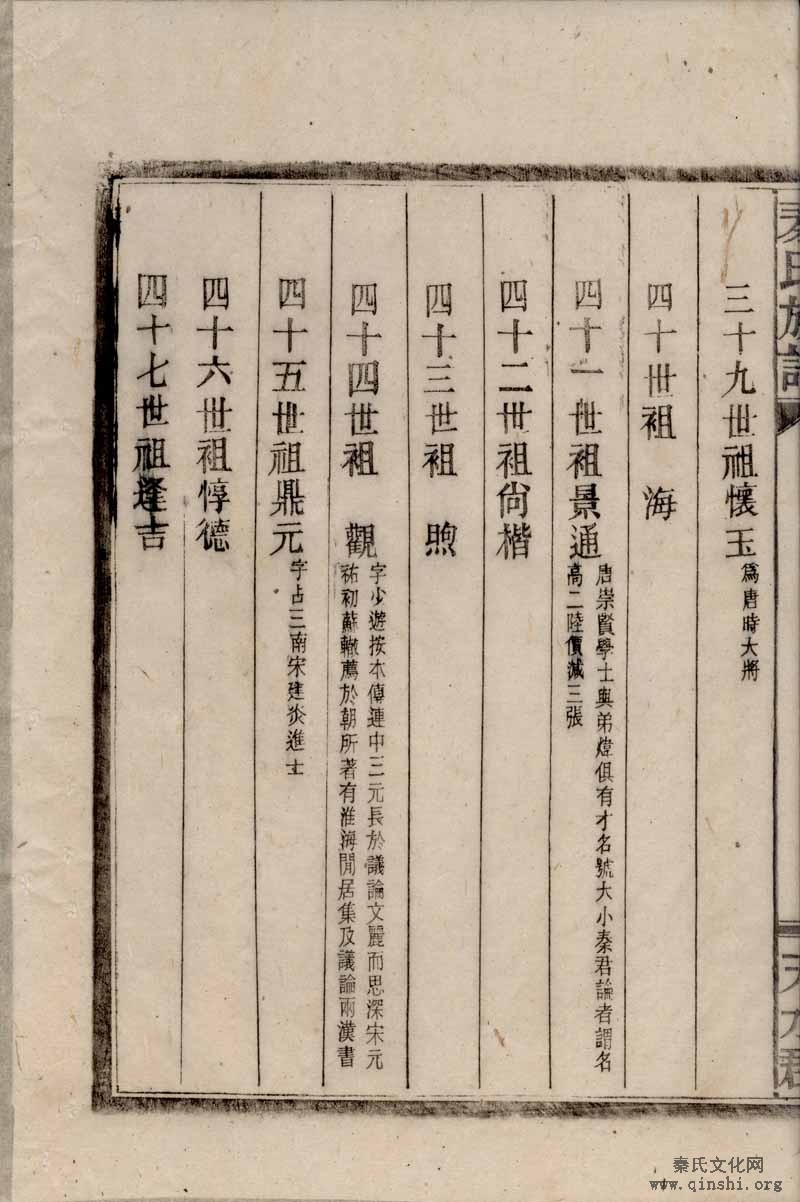 秦氏族譜
天水郡
三十九世祖懷玉 爲唐時大將
四十世祖 海
四十一世祖景通 唐崇賢學士與弟煒俱有才名號大小秦君論者謂名
高二陸價減三張
四十二世祖尙楷
四十三世祖 煦
四十四世祖 觀 字少遊按本傳連中三元長於議論文麗而思深宋元
祐初蘇轍薦於朝所著有淮海閒居集及議論兩漢書
四十五世祖鼎元 字占三南宋建炎進士
四十六世祖惇德
四十七世祖逢吉
秦氏文化网
www.qinshi.org